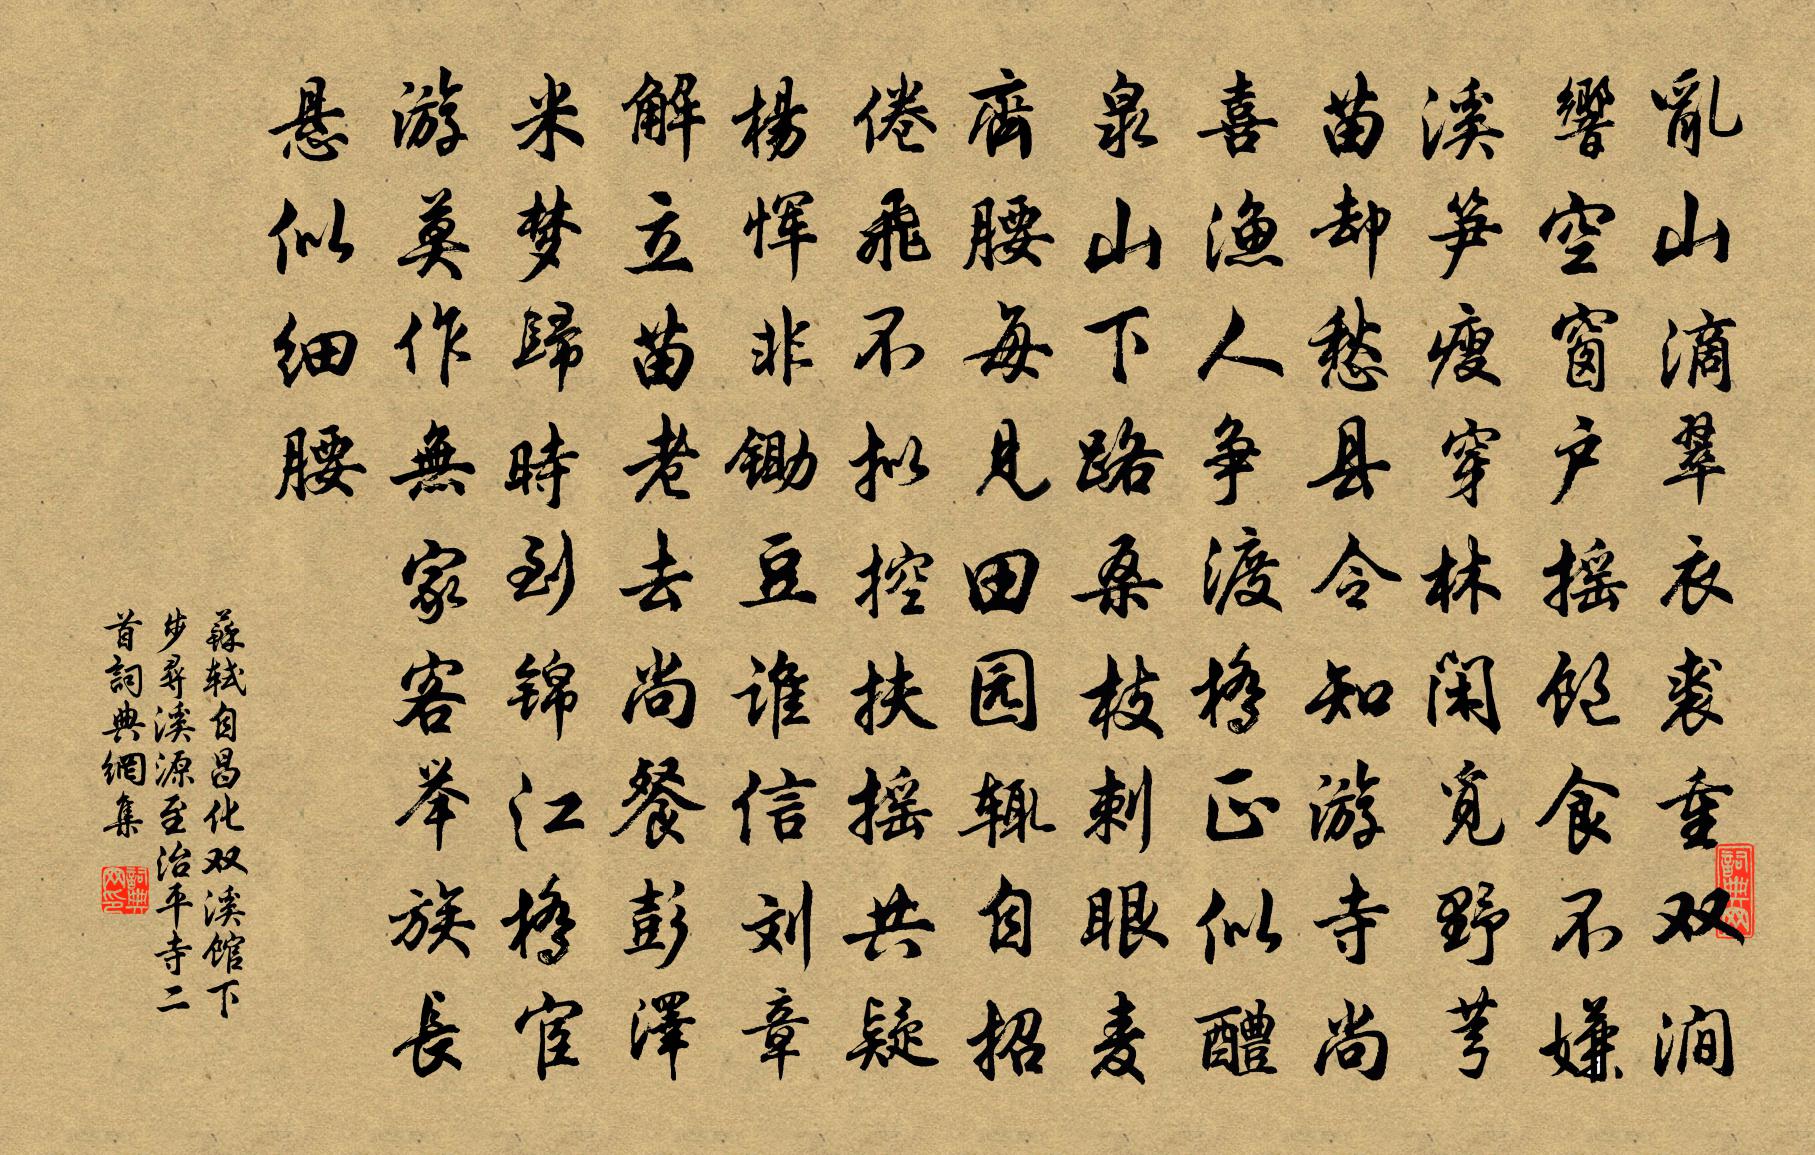 亂山滴翠衣裘重双澗
響空窗户摇飽食不嫌
溪笋瘦穿林闲覓野芎
苗却愁县令知游寺尚
喜漁人争渡橋正似醴
泉山下路桑枝刺眼麦
齊腰每見田园辄自招
倦飛不拟控扶摇共疑
楊恽非锄豆谁信刘章
解立苗老去尚餐彭澤
米梦歸時到锦江橋宦
游莫作無家客举族長
悬似细腰
蘇轼自昌化双溪馆下
步尋溪源至治平寺二
首詞典網集
詞典网
詞典网印